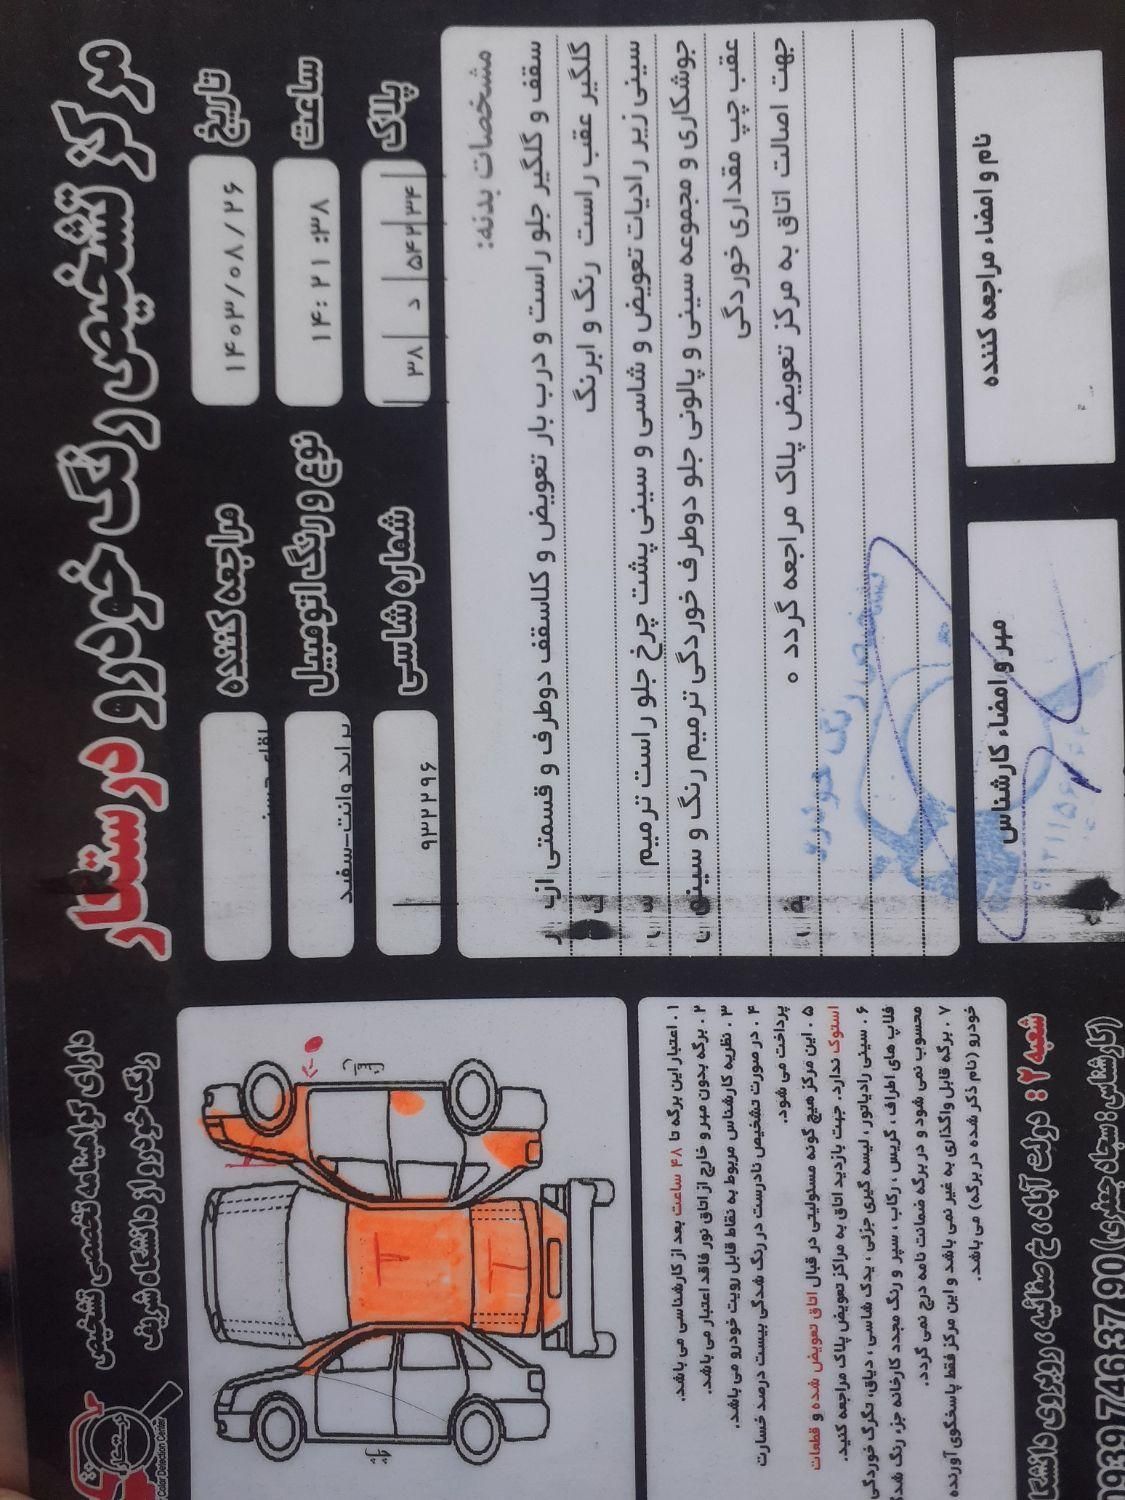 مرکز تشخیص رنگ خودرو درستکار
دارای گواهینامه تخصصی تشخیص
رنگ خودرو از دانشگاه شریف
تاریخ
۱۴۰۳/۰۸/۲۶
مراجعه کننده
ساعت
۱۴:۲۱:۳۸
نوع و رنگ اتومبیل
پراید وانت-سفید
پلاک
۳۴ ۵۴۲ د ۳۸
شماره شاسی
۹۳۲۲۹۶
مشخصات بدنه:
سقف و گلگیر جلو راست و درب بار تعویض و کلاسقف دوطرف و قسمتی از
گلگیر عقب راست رنگ و ابرنگ
سینی زیر رادیات تعویض و شاسی و سینی پشت چرخ جلو راست ترمیم
جوشکاری و مجموعه سینی و پالونی جلو دوطرف خوردگی ترمیم رنگ و سینی
عقب چپ مقداری خوردگی
جهت اصالت اتاق به مرکز تعویض پلاک مراجعه گردد ه
نام و امضاء مراجعه کننده
مهر و امضاء کارشناس
تشخیص رنگ خودرو
راست
چپ
T
T
T
۱. اعتبار این برگه تا ۴۸ ساعت بعد از کارشناسی می باشد.
۲. برگه بدون مهر و خارج از اتاق نور فاقد اعتبار می باشد.
۳. نظریه کارشناس مربوط به نقاط قابل رویت خودرو می باشد.
۴. در صورت تشخیص نادرست در رنگ شدگی بیست درصد خسارت
پرداخت می شود.
۵. این مرکز هیچ گونه مسئولیتی در قبال اتاق تعویض شده و قطعات
استوک ندارد. جهت بازدید اتاق به مراکز تعویض پلاک مراجعه کنید.
۶. سینی رادیاتور، لیسه گیری جزئی، یدک شاسی، دیاق، تگرگ خوردگی
قلاب های اطراف، گریس، رکاب، سپر و رنگ مجدد کارخانه جزء رنگ شد
محسوب نمی شود و در برگه ضمانت نامه درج نمی گردد.
۷. برگه قابل واگذاری به غیر نمی باشد و این مرکز فقط پاسخگوی آورنده
خودرو (نام ذکر شده در برگه) می باشد.
شعبه ۲: دولت آباد، خ صفائیه، روبروی دانشگا
(کارشناس: سجاد جعفری) 09397463790
Color Detection Center